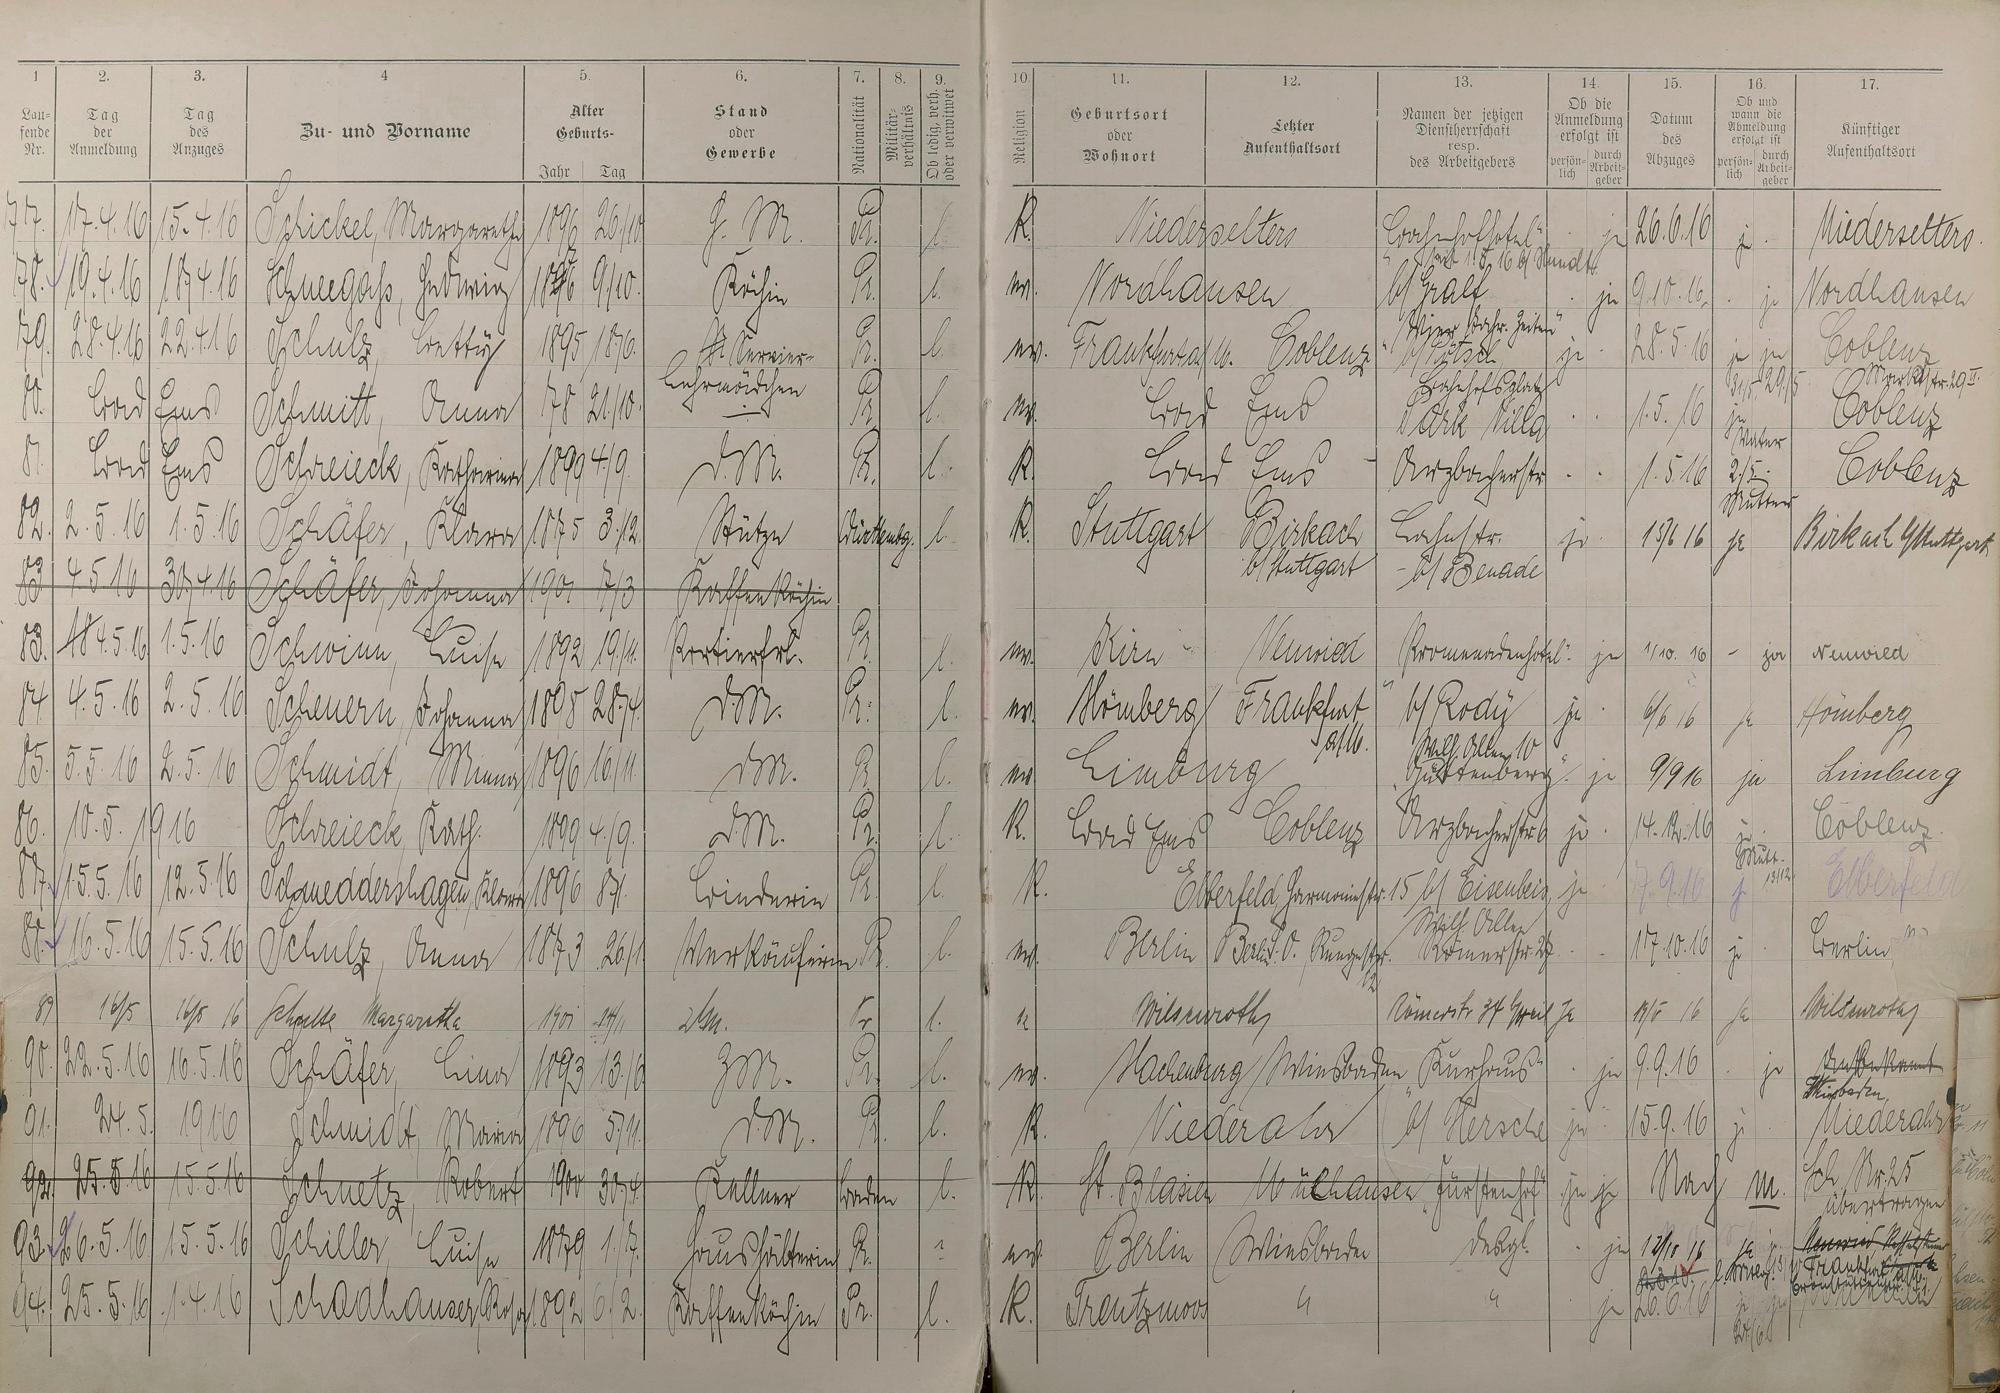 1 2. 3. 4 5. 6. 7. 8. 9. 10. 11. 12. 13. 14. 15. 16. 17.
Laufende Nr. Tag der Anmeldung Tag des Anzuges Zu- und Vorname Alter Geburts- Jahr Tag Stand oder Gewerbe Nationalität Militär-verhältnis Ob ledig, verh. oder verwitwet Religion Geburtsort oder Wohnort Letzter Aufenthaltsort Namen der jetzigen Dienstherrschaft resp. des Arbeitgebers Ob die Anmeldung erfolgt ist persönlich durch Arbeitgeber Datum des Abzuges Ob und wann die Abmeldung erfolgt ist persönlich durch Arbeitgeber Künftiger Aufenthaltsort
77. 17.4.16 15.4.16 Schickel, Margarethe 1896 26/10 Z. M. Pr. l. K. Niederselters Bahnhofhotel ja 26.6.16 ja Niederselters.
78. 19.4.16 18.4.16 Schneegaß, Hedwig 9/10. Köchin Pr. l. ev. Nordhausen b/ Graf ja 9.10.16. ja Nordhausen
79. 28.4.16 22.4.16 Schulz, Betty 1895 18/6. Servier- Pr. l. ev. Frankfurt a/M. Coblenz "Vier Jahr. Zeiten" ja 28.5.16 ja ja Coblenz
lehrmädchen 29/5 Marktstr. 29 II.
80. Bad Ems Schmitt, Anna 78 21/10. Pr. l. ev. Bad Ems Bahnhofsplatz Park Villa 1.5.16 Coblenz
81. Bad Ems Schreieck, Katharina 1899 4/9. d.M. Pr. l. K. Bad Ems - Arzbacherstr. 1.5.16 2/5. Mutter Coblenz
82. 2.5.16 1.5.16 Schäfer, Klara 1875 3/12. Stütze Württembg. l. K. Stuttgart Birkach Lahnstr. ja 15/6 16 ja Birkach b/Stuttgart
b/ Stuttgart - b/ Benade
83 4.5.16 30.4.16 Schäfer, Johanna 1901 7/3 Kaffeeköchin
83. 4.5.16 1.5.16 Schwinn, Luise 1892 19/11. Portierfrl. Pr. l. ev. Kirn - Neuwied "Promenadenhotel". ja 1/10. 16 - ja Neuwied
84. 4.5.16 2.5.16 Scheuern, Johanna 1898 28/4. d.M. Pr. l. ev. Hömberg Frankfurt a/M. b/ Rody ja 6/6 16 ja Hömberg
85. 5.5.16 2.5.16 Schmidt, Minna 1896 16/11. d.M. Pr. l. ev. Limburg Wilh. Allee 10 "Guttenberg". ja 9/9 16 ja Limburg
86. 10.5.1916 Schreieck, Kath. 1899 4/9. d.M. Pr. l. K. Bad Ems Coblenz Arzbacherstr. 6 ja 14.12.16 ja Mutt. 13/12. Coblenz.
87. 15.5.16 12.5.16 Schmeddershagen, Klara 1896 8/1. Binderin Pr. l. K. Elberfeld, Harmoniestr. 15 b/ Eisenbeis, ja 7.9.16 ja Elberfeld
Wilh. Allee
88. 16.5.16 15.5.16 Schulz, Anna 1873 26/1. Verkäuferin Pr. l. ev. Berlin Berlin S.O., Rungestr. Römerstr. 27 17.10.16 ja Berlin
89 16/5 16/5 16 Schulte Margaretha 1901 Pr l. K Wilsenroth Römerstr 37 b/ Weil Ja 19/5 16 Ja Wilsenroth
90. 22.5.16 16.5.16 Schäfer, Lina 1893 13/6 Z.M. Pr. l. ev. Hachenburg Wiesbaden "Kurhaus" ja 9.9.16 ja Unbekannt
Wiesbaden
91. 24.5.1916 Schmidt, Maria 1896 5/11. d.M. Pr. l. K. Niederahr b/ Hersche ja 15.9.16 ja Niederahr
92. 25.5.16 15.5.16 Schnetz, Robert 1900 30/4. Kellner Baden l. K. St. Blasien Mülhausen "Fürstenhof" ja Nach M. Sch Nr. 25 übertragen
93. 26.5.16 15.5.16 Schiller, Luise 1879 1/7. Haushälterin Pr. ev. Berlin Wiesbaden desgl. ja 12/10 16 ja Neuwied
Frankfurt
94. 25.5.16 1.4.16 Schadhauser, Rosa 1892 6/2. Kaffeeköchin Pr. l. K. Trentzmoos " " ja 20.6.16 ja 24/6